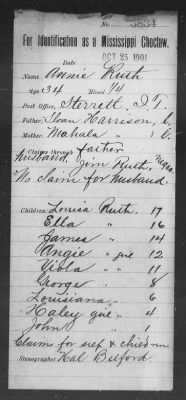 5834
For Identification as a Mississippi Choctaw.
Date OCT 25 1901
Name Annie Ruth
Age 34 Blood 1/4
Post Office, Sterrett, I.T.
Father: Sloan Harrison, C.
Mother: Mahala " C.
Claims through father
husband, Jim Ruth, Negro.
No claim for husband.
Children: Louisa Ruth. 17
Ella " 16
James " 14
Angie " gie 12
Viola " 11
George " 8
Louisiana " 6
Haley gie " 4
John " 1
Claims for self & children
Stenographer Hal Belford.